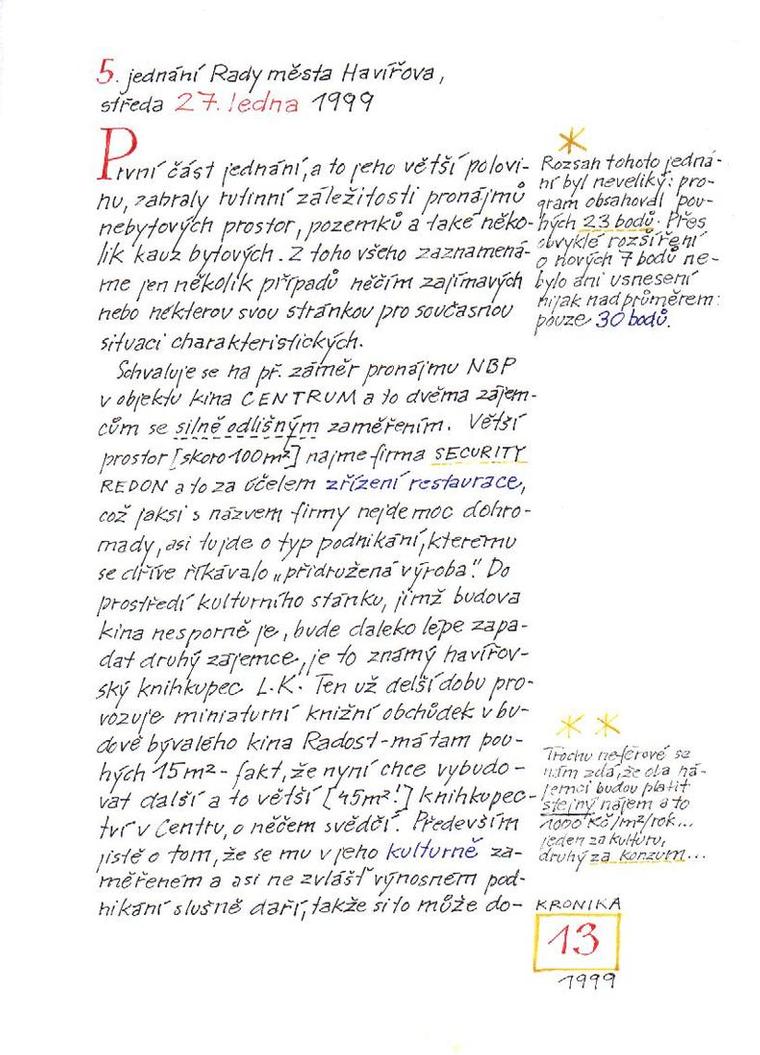 5. jednání Rady města Havířova,
středa 27. ledna 1999
První část jednání, a to jeho větší polovi-
nu, zabraly rutinní záležitosti pronájmů
nebytových prostor, pozemků a také něko-
lik kauz bytových. Z toho všeho zaznamená-
me jen několik případů něčím zajímavých
nebo některou svou stránkou pro současnou
situaci charakteristických.
Schvaluje se na př. záměr pronájmu NBP
v objektu kina CENTRUM a to dvěma zájem-
cům se silně odlišným zaměřením. Větší
prostor [skoro 100m²] najme firma SECURITY
REDON a to za účelem zřízení restaurace,
což jaksi s názvem firmy nejde moc dohro-
mady, asi tu jde o typ podnikání, kterému
se dříve říkávalo „přidružená výroba". Do
prostředí kulturního stánku, jímž budova
kina nesporně je, bude daleko lépe zapa-
dat druhý zájemce, je to známý havířov-
ský knihkupec L.K. Ten už delší dobu pro-
vozuje miniaturní knižní obchůdek v bu-
dově bývalého kina Radost - má tam pou-
hých 15m² - fakt, že nyní chce vybudo-
vat další a to větší [45m²!] knihkupec-
tví v Centru, o něčem svědčí. Především
jistě o tom, že se mu v jeho kulturně za-
měřeném a asi ne zvlášť výnosném pod-
nikání slušně daří, takže si to může do-
*
Rozsah tohoto jedná-
ní byl neveliký: pro-
gram obsahoval pou-
hých 23 bodů. Přes
obvyklé rozšíření
o nových 7 bodů ne-
bylo ani usnesení
nijak nadprůměrem:
pouze 30 bodů.
* *
Trochu neférové se
nám zdá, že oba ná-
jemci budou platit
stejný nájem a to
1000 Kč/m²/rok...
jeden za kulturu,
druhý za konzum...
KRONIKA
13
1999